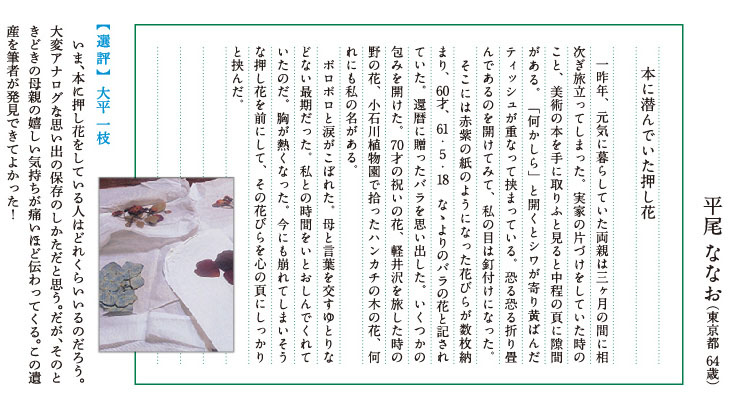 平尾 ななお（東京都 64歳）
本に潜んでいた押し花
一昨年、元気に暮らしていた両親は三ヶ月の間に相
次ぎ旅立ってしまった。実家の片づけをしていた時の
こと、美術の本を手に取りふと見ると中程の頁に隙間
がある。「何かしら」と開くとシワが寄り黄ばんだ
ティッシュが重なって挟まっている。恐る恐る折り畳
んであるのを開けてみて、私の目は釘付けになった。
そこには赤紫の紙のようになった花びらが数枚納
まり、60才、61・5・18 なゝよりのバラの花と記され
ていた。還暦に贈ったバラを思い出した。いくつかの
包みを開けた。70才の祝いの花、軽井沢を旅した時の
野の花、小石川植物園で拾ったハンカチの木の花、何
れにも私の名がある。
ポロポロと涙がこぼれた。母と言葉を交すゆとりな
どない最期だった。私との時間をいとおしんでくれて
いたのだ。胸が熱くなった。今にも崩れてしまいそう
な押し花を前にして、その花びらを心の頁にしっかり
と挟んだ。
【選評】大平 一枝
いま、本に押し花をしている人はどれくらいいるのだろう。
大変アナログな思い出の保存のしかただと思う。だが、そのと
きどきの母親の嬉しい気持ちが痛いほど伝わってくる。この遺
産を筆者が発見できてよかった！